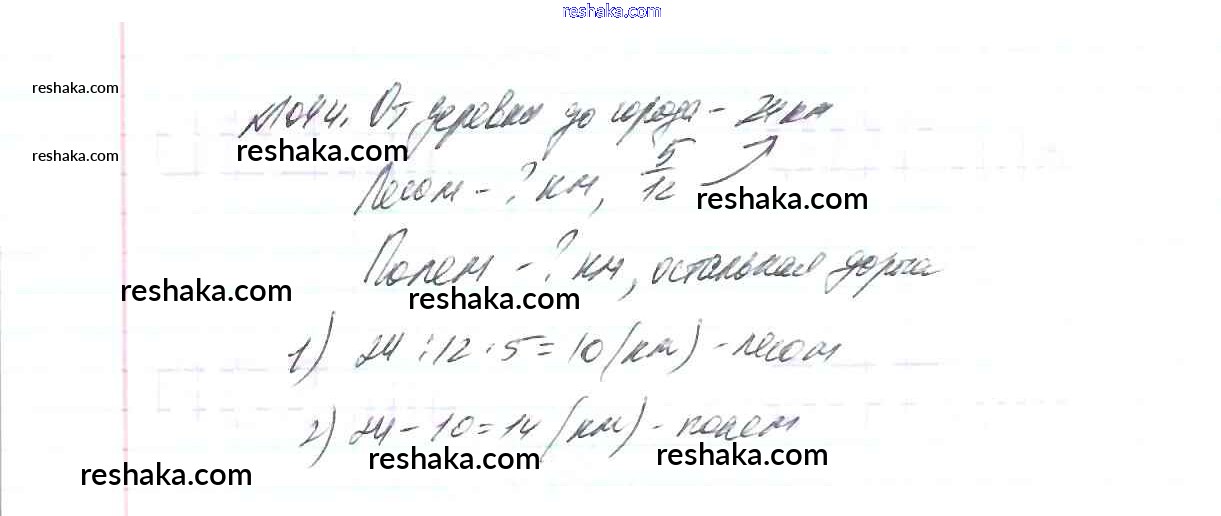 reshaka.com
reshaka.com
№1044. От деревни до города - 24 км
reshaka.com
reshaka.com
Лесом - ? км, 5/12
reshaka.com
Полем - ? км, остальная дорога
reshaka.com
reshaka.com
1) 24 : 12 · 5 = 10 (км) - лесом
2) 24 - 10 = 14 (км) - полем
reshaka.com
reshaka.com
reshaka.com